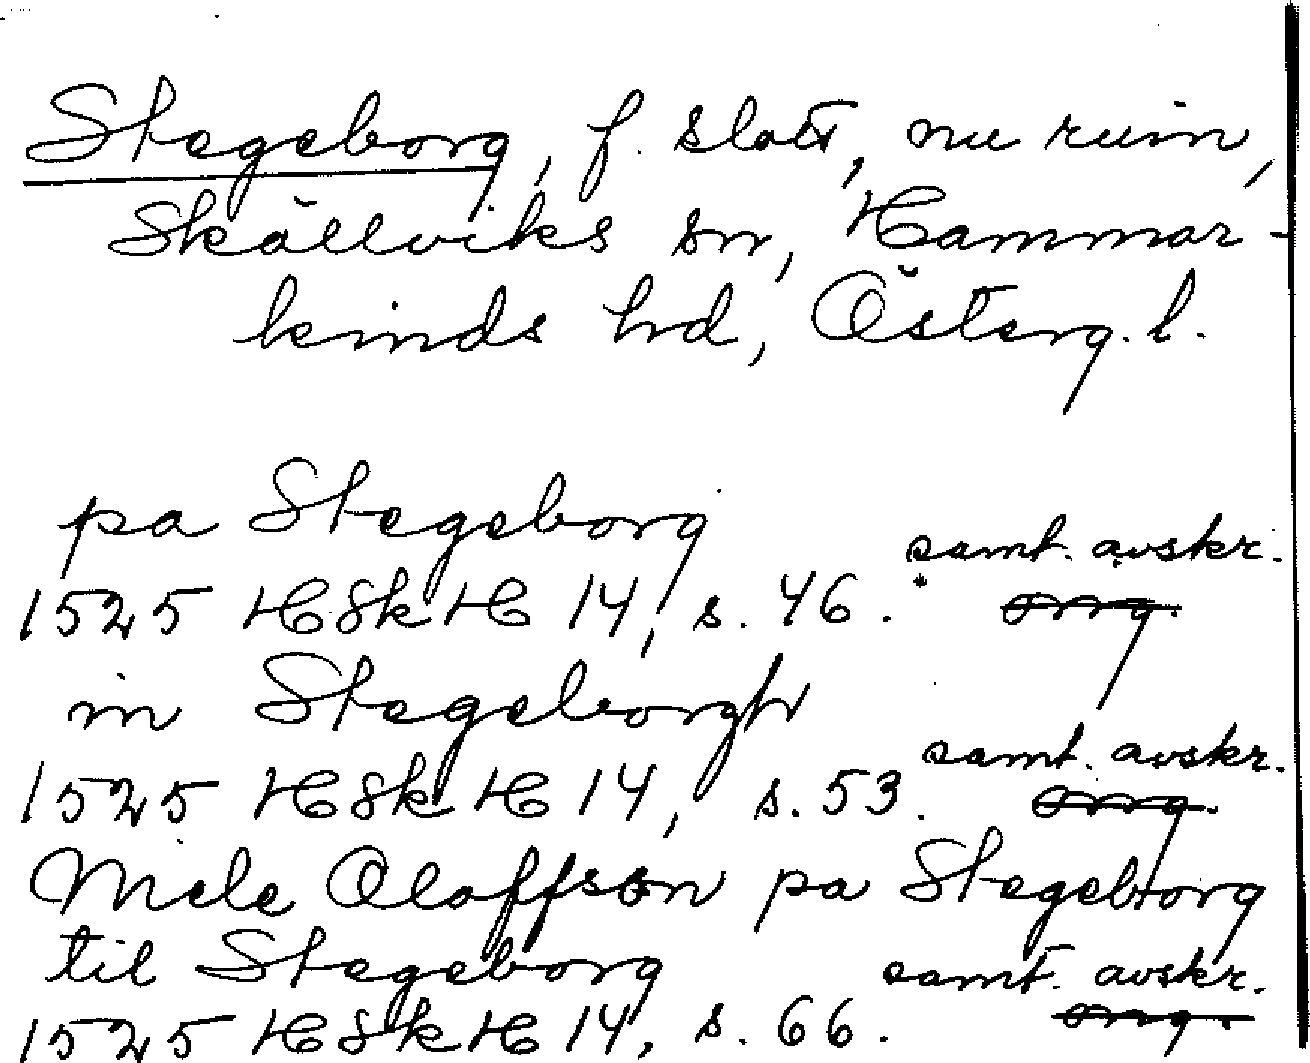 Stegeborg, f. slott, nu ruin,
Skällviks sn, Hammar-
kinds hd, Österg. l.
pa Stegeborg
samt. avskr.
1525 HSkH 14, s. 46. org.
in Stegeborgh
samt. avskr.
1525 HSkH 14, s. 53. org.
Mele Oloffson pa Stegeborg
til Stegeborg samt. avskr.
1525 HSkH 14, s. 66. org.